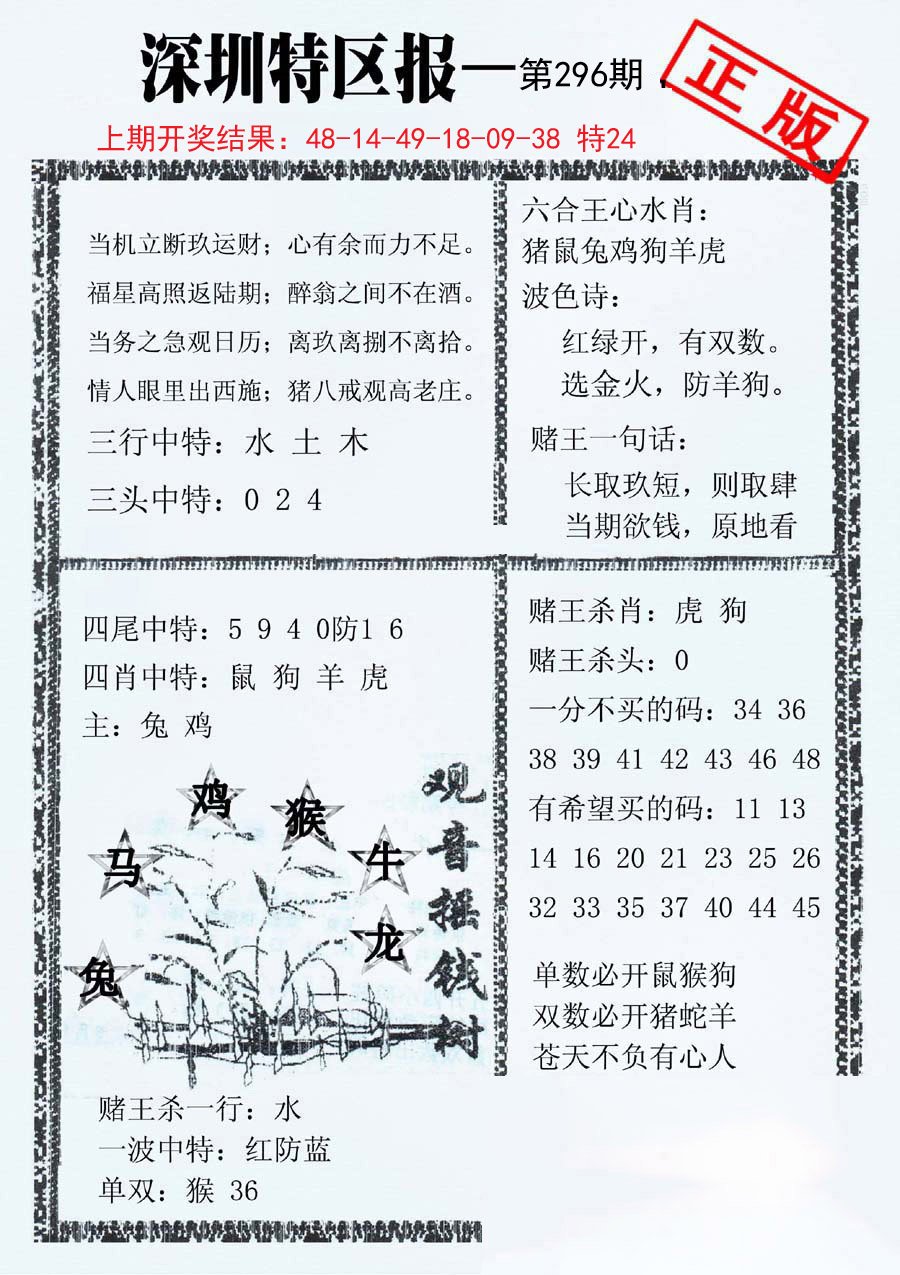 深圳特区报—第296期
正版
上期开奖结果：48-14-49-18-09-38 特24
当机立断玖运财；心有余而力不足。
福星高照返陆期；醉翁之间不在酒。
当务之急观日历；离玖离捌不离拾。
情人眼里出西施；猪八戒观高老庄。
三行中特：水 土 木
三头中特：0 2 4
六合王心水肖：
猪鼠兔鸡狗羊虎
波色诗：
红绿开，有双数。
选金火，防羊狗。
赌王一句话：
长取玖短，则取肆
当期欲钱，原地看
四尾中特：5 9 4 0防1 6
四肖中特：鼠 狗 羊 虎
主：兔 鸡
鸡
猴
马
牛
龙
兔
观音摇钱树
赌王杀一行：水
一波中特：红防蓝
单双：猴 36
赌王杀肖：虎 狗
赌王杀头：0
一分不买的码：34 36
38 39 41 42 43 46 48
有希望买的码：11 13
14 16 20 21 23 25 26
32 33 35 37 40 44 45
单数必开鼠猴狗
双数必开猪蛇羊
苍天不负有心人